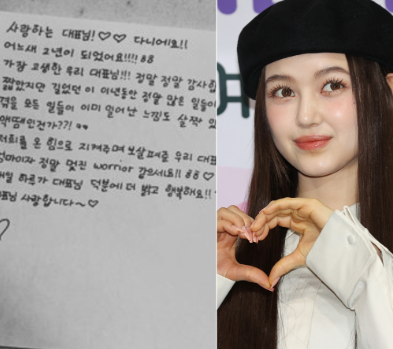 사랑하는 대표님!♡♡ 다니에요!!
어느새 2년이 되었어요!!!! 88
가장 고생한 우리 대표님!!! 정말 정말 감사합
짧았지만 길었던 이 이년동안 정말 많은 일들이
겪을 모든 일들이 이미 일어난 느낌도 살짝 있
액땜인건가??! ♥♥
저희를 온 힘으로 지켜주며 보살펴준 우리 대표
엄마이자 정말 멋진 worrior 같으세요!! 88 ♡
매일 하루가 대표님 덕분에 더 밝고 행복해요!!
대표님 사랑합니다~♡
여